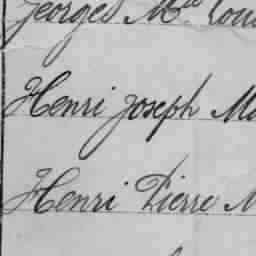 Georges Mce Loui
Henri Joseph Ma
Henri Pierre M